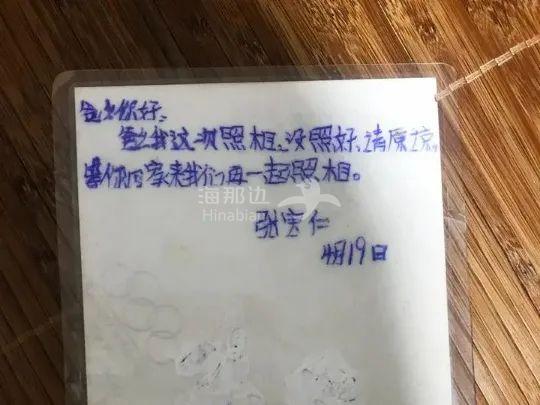 你好、
我这一次照相、没照好、请原谅。
等你回家来我们再一起照相。
海那边
Hinabian
张宝仁
4月19日